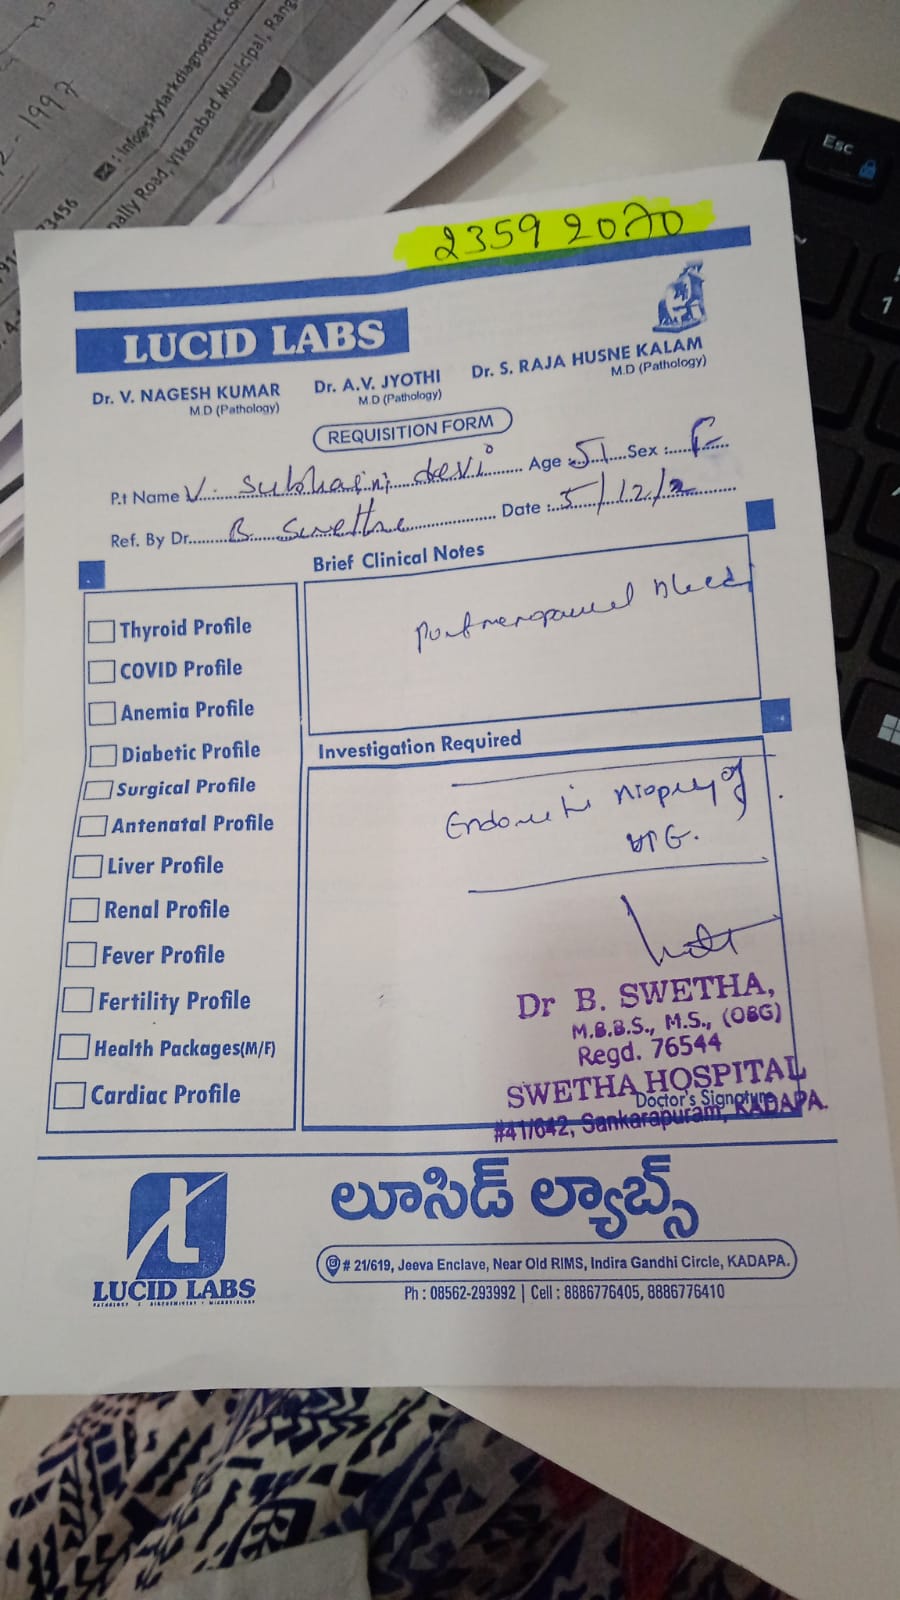 2 - 1997
: info@skylarkdiagnostics.co
pally Road, Vikarabad Municipal, Rang
73456
Esc
1
23592070
LUCID LABS
Dr. V. NAGESH KUMAR
M.D (Pathology)
Dr. A.V. JYOTHI
M.D (Pathology)
Dr. S. RAJA HUSNE KALAM
M.D (Pathology)
REQUISITION FORM
P.t Name V. Subhasini devi Age : 51 Sex : F
Ref. By Dr. B. Swetha Date : 5/12/2
Brief Clinical Notes
Postmenopausal bleedi
Thyroid Profile
COVID Profile
Anemia Profile
Diabetic Profile
Surgical Profile
Antenatal Profile
Liver Profile
Renal Profile
Fever Profile
Fertility Profile
Health Packages(M/F)
Cardiac Profile
Investigation Required
biopsy of
Dr B. SWETHA,
M.B.B.S., M.S., (OBG)
Regd. 76544
SWETHA HOSPITAL
Doctor's Signature
#41/642, Sankarapuram, KADAPA.
లూసిడ్ ల్యాబ్స్
LUCID LABS
PATHOLOGY | BIOCHEMISTRY | MICROBIOLOGY
# 21/619, Jeeva Enclave, Near Old RIMS, Indira Gandhi Circle, KADAPA.
Ph : 08562-293992 | Cell : 8886776405, 8886776410